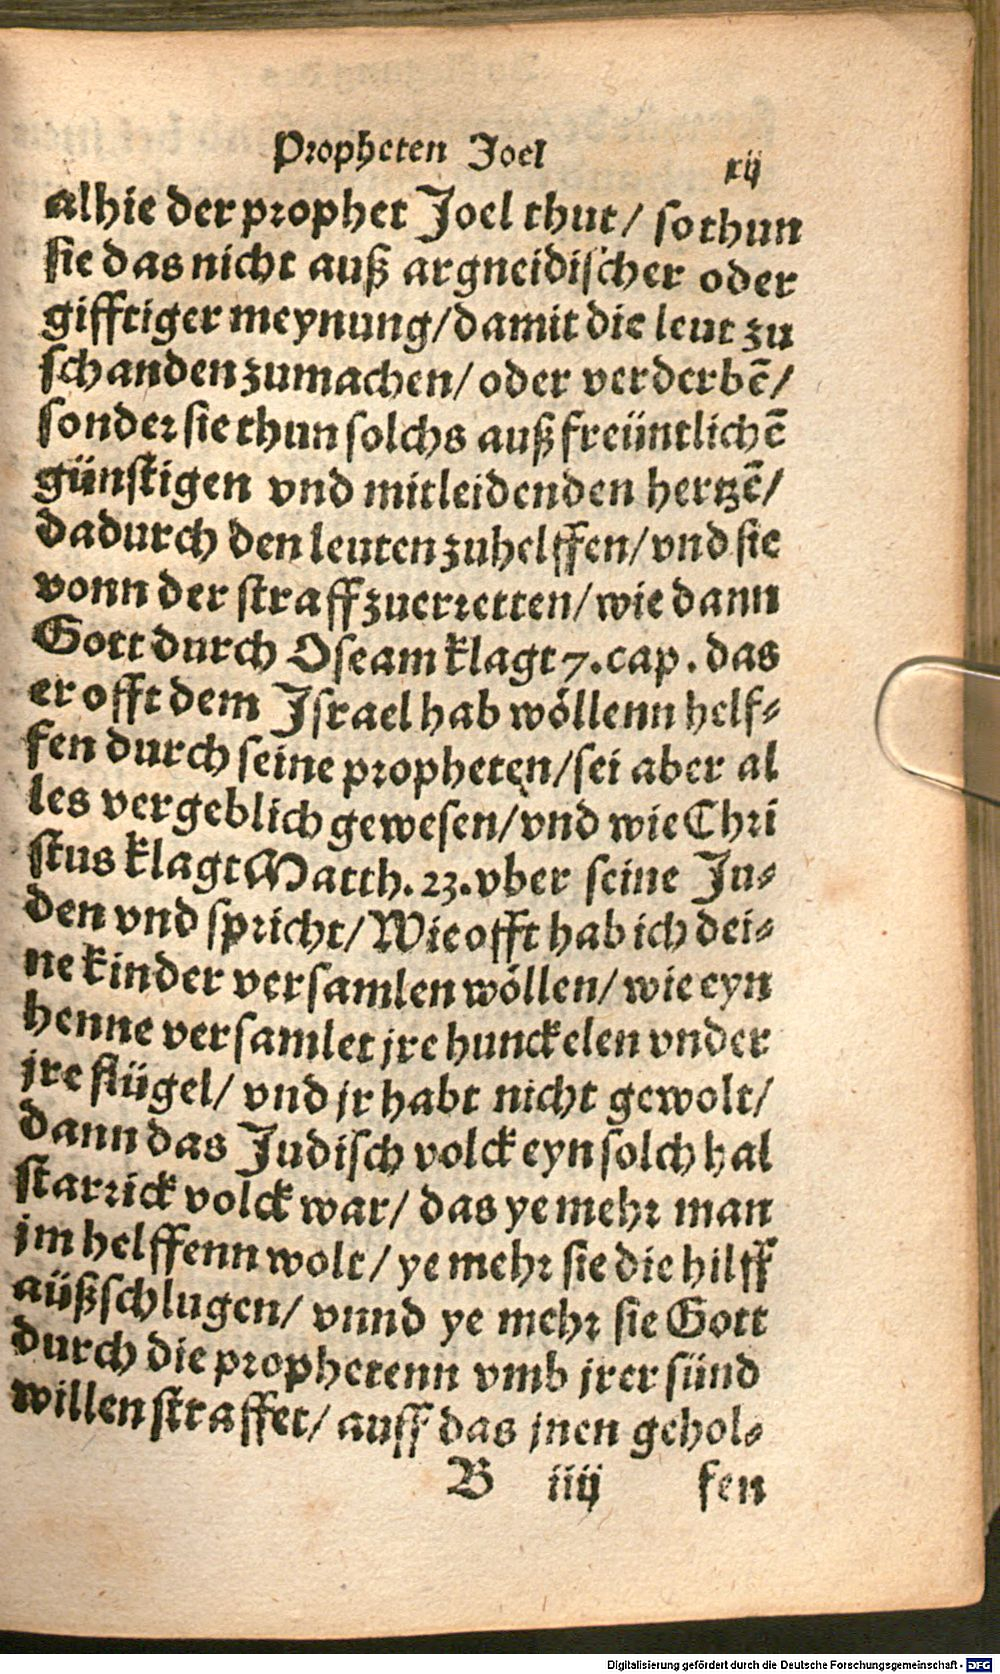 Propheten Joel xij
alhie der prophet Joel thut/ so thun
sie das nicht auß argneidischer oder
gifftiger meynung/ damit die leut zu
schanden zumachen/ oder verderbē/
sonder sie thun solchs auß freüntlichē
günstigen vnd mitleidenden hertzē/
dadurch den leuten zuhelffen/ vnd sie
vonn der straff zuerretten/ wie dann
Gott durch Oseam klagt 7. cap. das
er offt dem Israel hab wöllenn helf⸗
fen durch seine propheten/ sei aber al
les vergeblich gewesen/ vnd wie Chri
stus klagt Matth. 23. vber seine Ju⸗
den vnd spricht/ Wie offt hab ich dei⸗
ne kinder versamlen wöllen/ wie eyn
henne versamlet jre hunckelen vnder
jre flügel/ vnd jr habt nicht gewolt/
dann das Judisch volck eyn solch hal
starrick volck war/ das ye mehr man
jm helffenn wolt/ ye mehr sie die hilff
aüßschlugen/ vnnd ye mehr sie Gott
durch die prophetenn vmb jrer sünd
willen straffet/ auff das jnen gehol⸗
B iiij fen
Digitalisierung gefördert durch die Deutsche Forschungsgemeinschaft - DFG